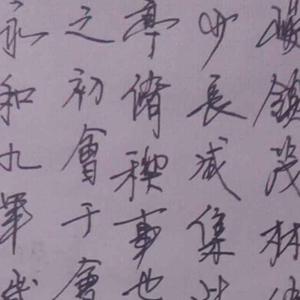 永和九年歲
之初會于會
亭脩禊事也
少長咸集此
峻領茂林脩